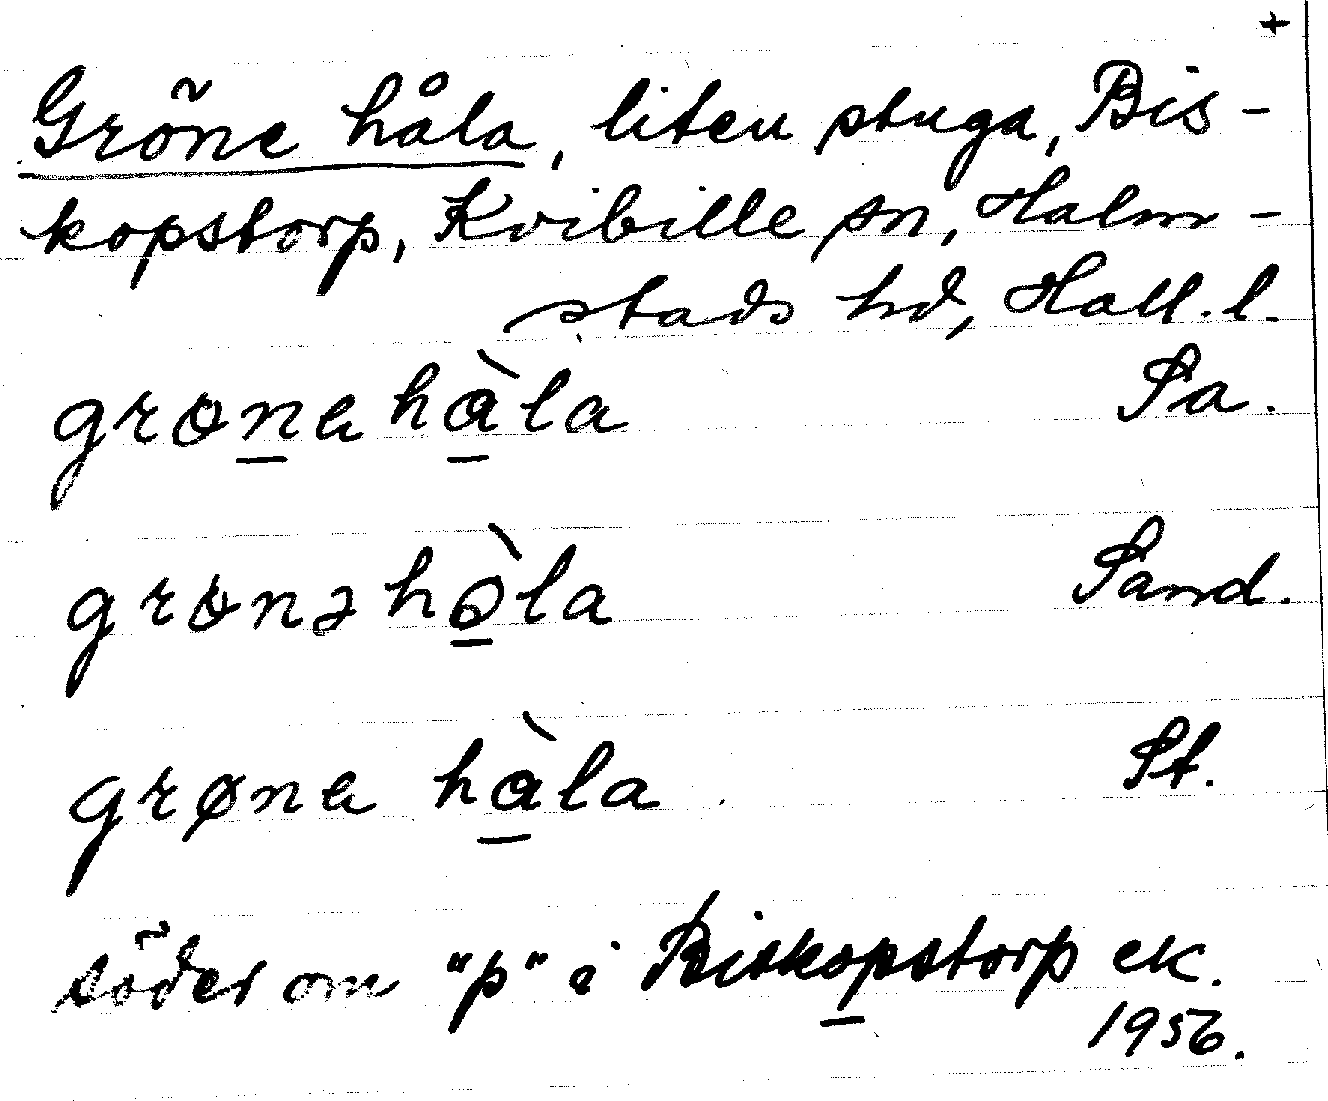 +
Gröne håla, liten stuga, Bis-
kopstorp, Kvibille sn, Halm-
stads hd, Hall. l.
grɵna hàla Sa.
grɵnə hòla Sand.
grøna hàla St.
söder om "p" i Biskopstorp ek.
1956.